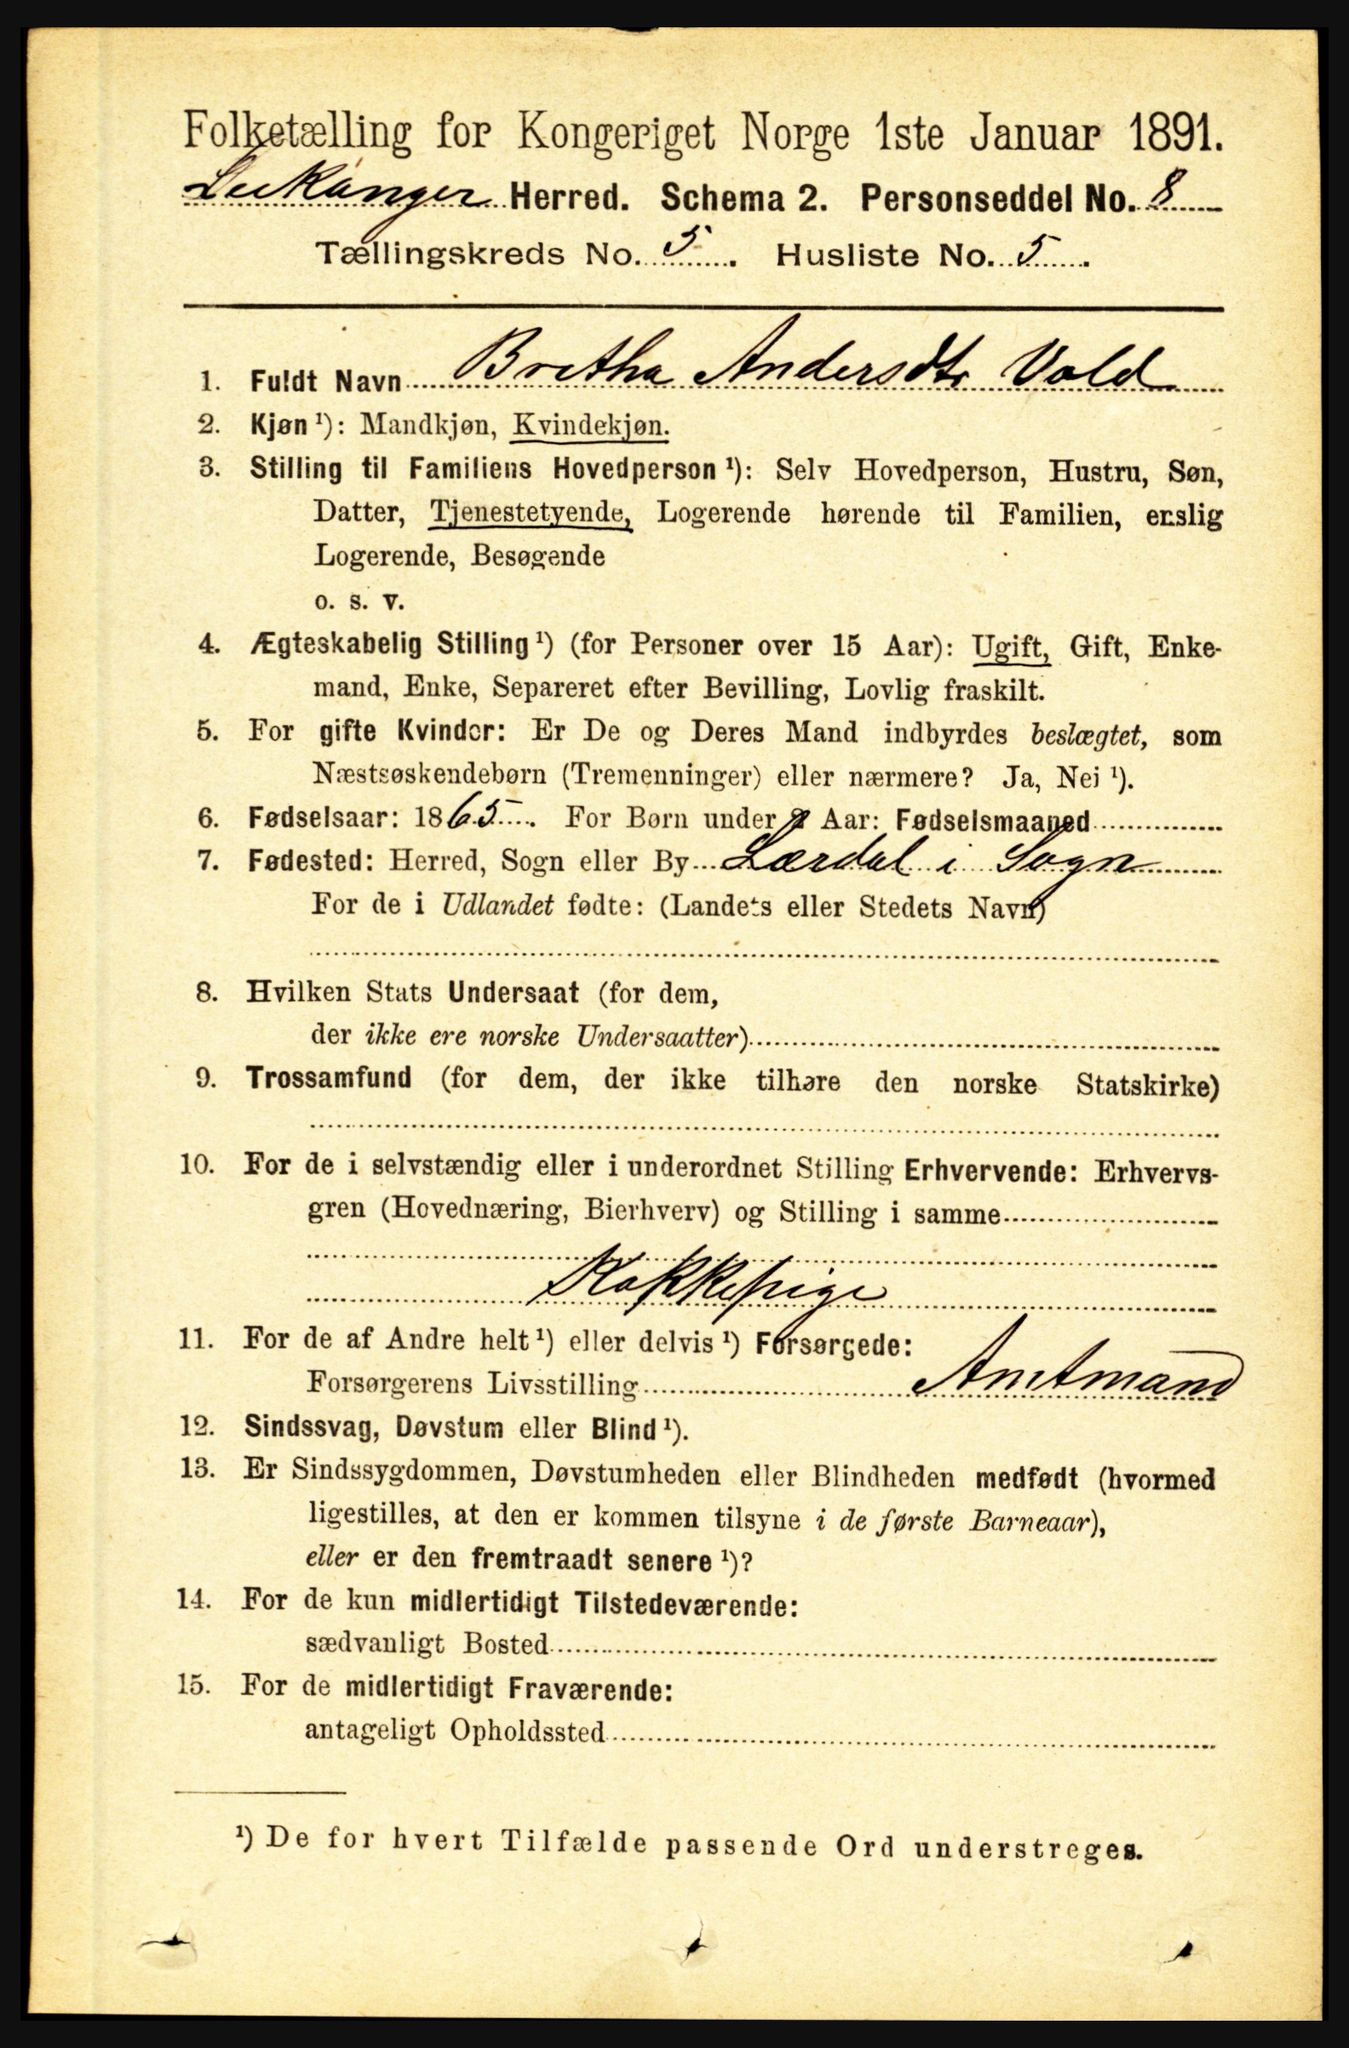 Folketælling for Kongeriget Norge 1ste Januar 1891.
Leikanger Herred. Schema 2. Personseddel No. 8
Tællingskreds No. 5. Husliste No. 5.
1. Fuldt Navn Bretha Andersdtr Vold
2. Kjøn ¹): Mandkjøn, Kvindekjøn.
3. Stilling til Familiens Hovedperson ¹): Selv Hovedperson, Hustru, Søn,
Datter, Tjenestetyende, Logerende hørende til Familien, enslig
Logerende, Besøgende
o. s. v.
4. Ægteskabelig Stilling ¹) (for Personer over 15 Aar): Ugift, Gift, Enke-
mand, Enke, Separeret efter Bevilling, Lovlig fraskilt.
5. For gifte Kvinder: Er De og Deres Mand indbyrdes beslægtet, som
Næstsøskendebørn (Tremenninger) eller nærmere? Ja, Nei ¹).
6. Fødselsaar: 1865. For Børn under 2 Aar: Fødselsmaaned
7. Fødested: Herred, Sogn eller By Lærdal i Sogn
For de i Udlandet fødte: (Landets eller Stedets Navn)
8. Hvilken Stats Undersaat (for dem,
der ikke ere norske Undersaatter)
9. Trossamfund (for dem, der ikke tilhøre den norske Statskirke)
10. For de i selvstændig eller i underordnet Stilling Erhvervende: Erhvervs-
gren (Hovednæring, Bierhverv) og Stilling i samme
Kokkepige
11. For de af Andre helt ¹) eller delvis ¹) Forsørgede:
Forsørgerens Livsstilling Amtmand
12. Sindssvag, Døvstum eller Blind ¹).
13. Er Sindssygdommen, Døvstumheden eller Blindheden medfødt (hvormed
ligestilles, at den er kommen tilsyne i de første Barneaar),
eller er den fremtraadt senere ¹)?
14. For de kun midlertidigt Tilstedeværende:
sædvanligt Bosted
15. For de midlertidigt Fraværende:
antageligt Opholdssted
¹) De for hvert Tilfælde passende Ord understreges.